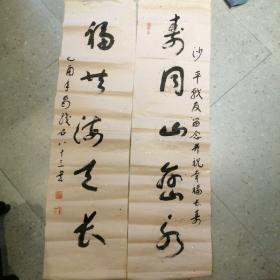 沙平战友留念并祝幸福长寿
寿同山岳永
福共海天长
乙酉年葛残石八十三书